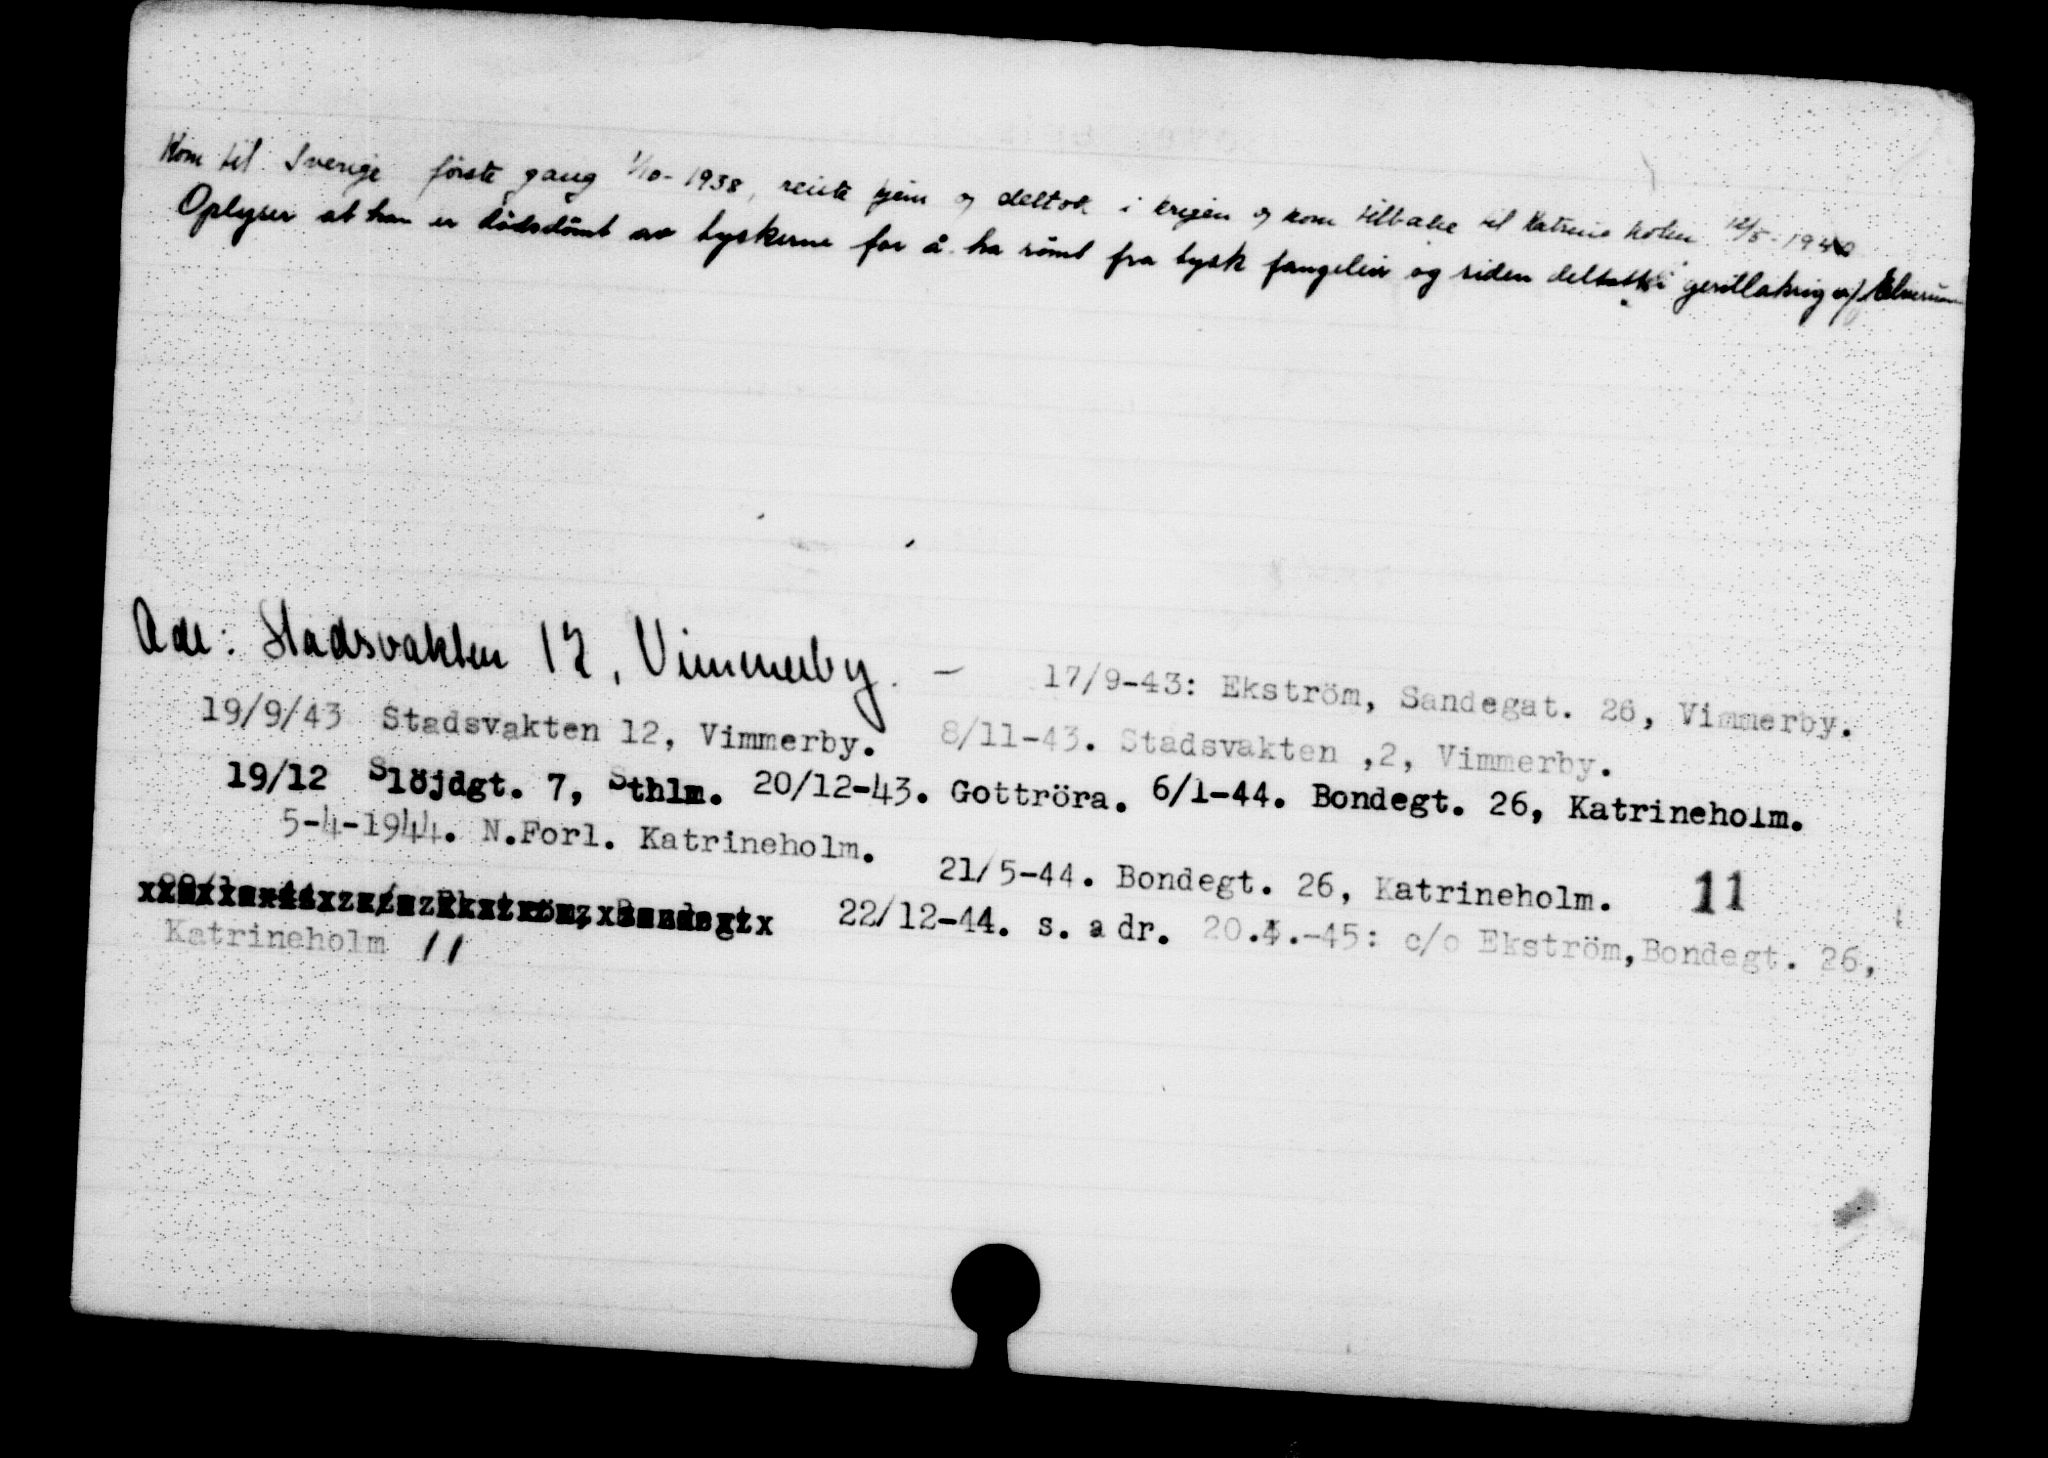 Kom til Sverige förste gang 1/10-1938, reiste hjem og deltok i krigen og kom tilbake til Katrineholm 12/5-1940
Oplyser at han er dödsdömt av tyskerne for å ha römt fra tysk fangeleir og siden deltatt i gerillakrig v/ Elverum
Adr: Stadsvakten 12, Vimmerby. – 17/9-43: Ekström, Sandegat. 26, Vimmerby.
19/9/43 Stadsvakten 12, Vimmerby. 8/11-43. Stadsvakten ,2, Vimmerby.
19/12 Slöjdgt. 7, Sthlm. 20/12-43. Gottröra. 6/1-44. Bondegt. 26, Katrineholm.
5-4-1944. N.Forl. Katrineholm. 21/5-44. Bondegt. 26, Katrineholm. 11
22/12-44. s. adr. 20.4.-45: c/o Ekström, Bondegt. 26,
Katrineholm 11